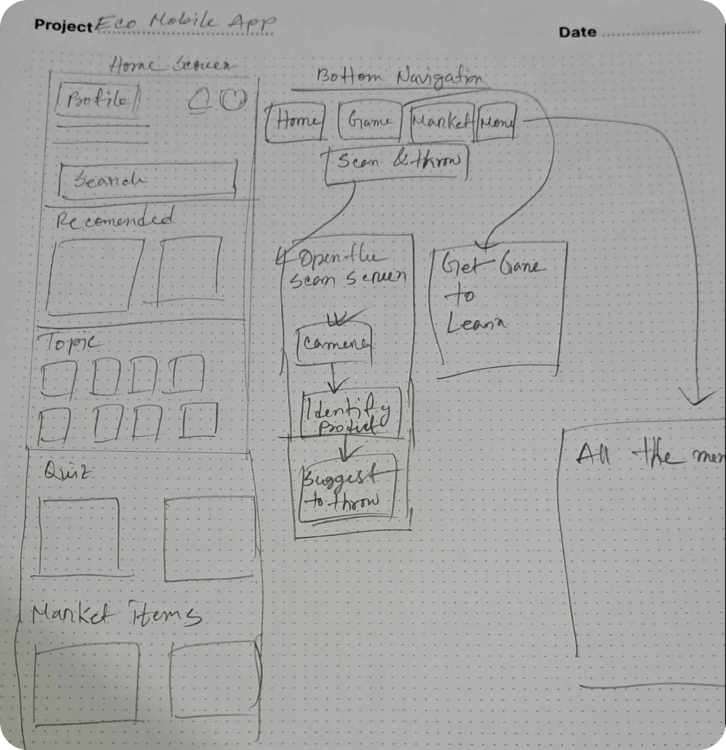 Project Eco Mobile App
Date
Home Screen
Profile
Search
Recomended
Topic
Quiz
Market items
Bottom Navigation
Home
Game
Market
More
Scan & throw
Open the
Scan Screen
Camera
Identify
Product
Suggest
to throw
Get Game
to
Learn
All the men